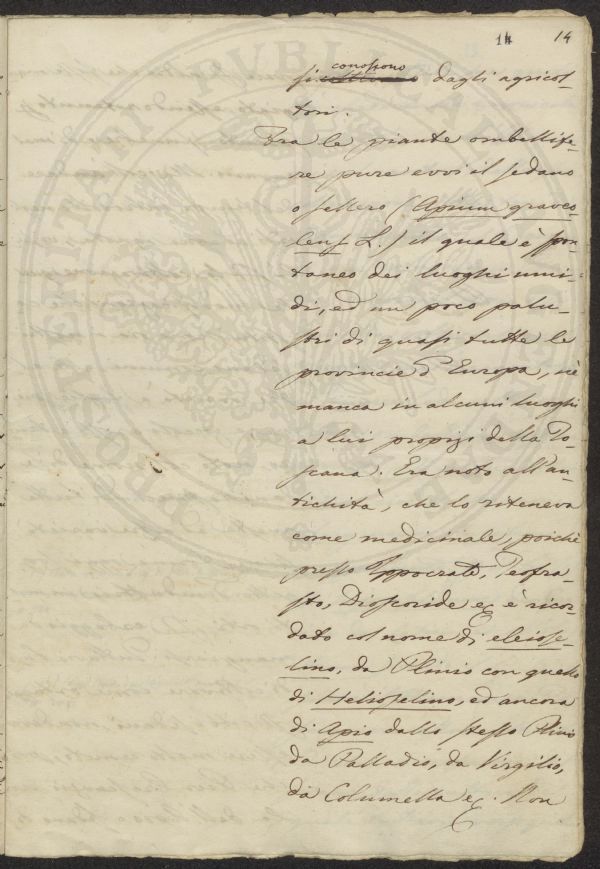 14 14
conossono
si coltivano dagli agricol-
tori.
Tra le piante ombellife-
re pure evvi il sedano
o sellero (Apium graveo-
lens L.) il quale è spon-
taneo dei luoghi umi-
di, ed un poco palu-
stri di quasi tutte le
provincie d'Europa, nè
manca in alcuni luoghi
a lui propizi della To-
scana. Era noto all'an-
tichità, che lo riteneva
come medicinale, poichè
presso Ippocrate, Teofra-
sto, Dioscoride &c è ricor-
dato col nome di eleiose-
lino, da Plinio con quello
di Helioselino, ed ancora
di Apio dallo stesso Plinio
da Palladio, da Virgilio,
da Columella &c. Non
PROSPERITATI PUBLICAE